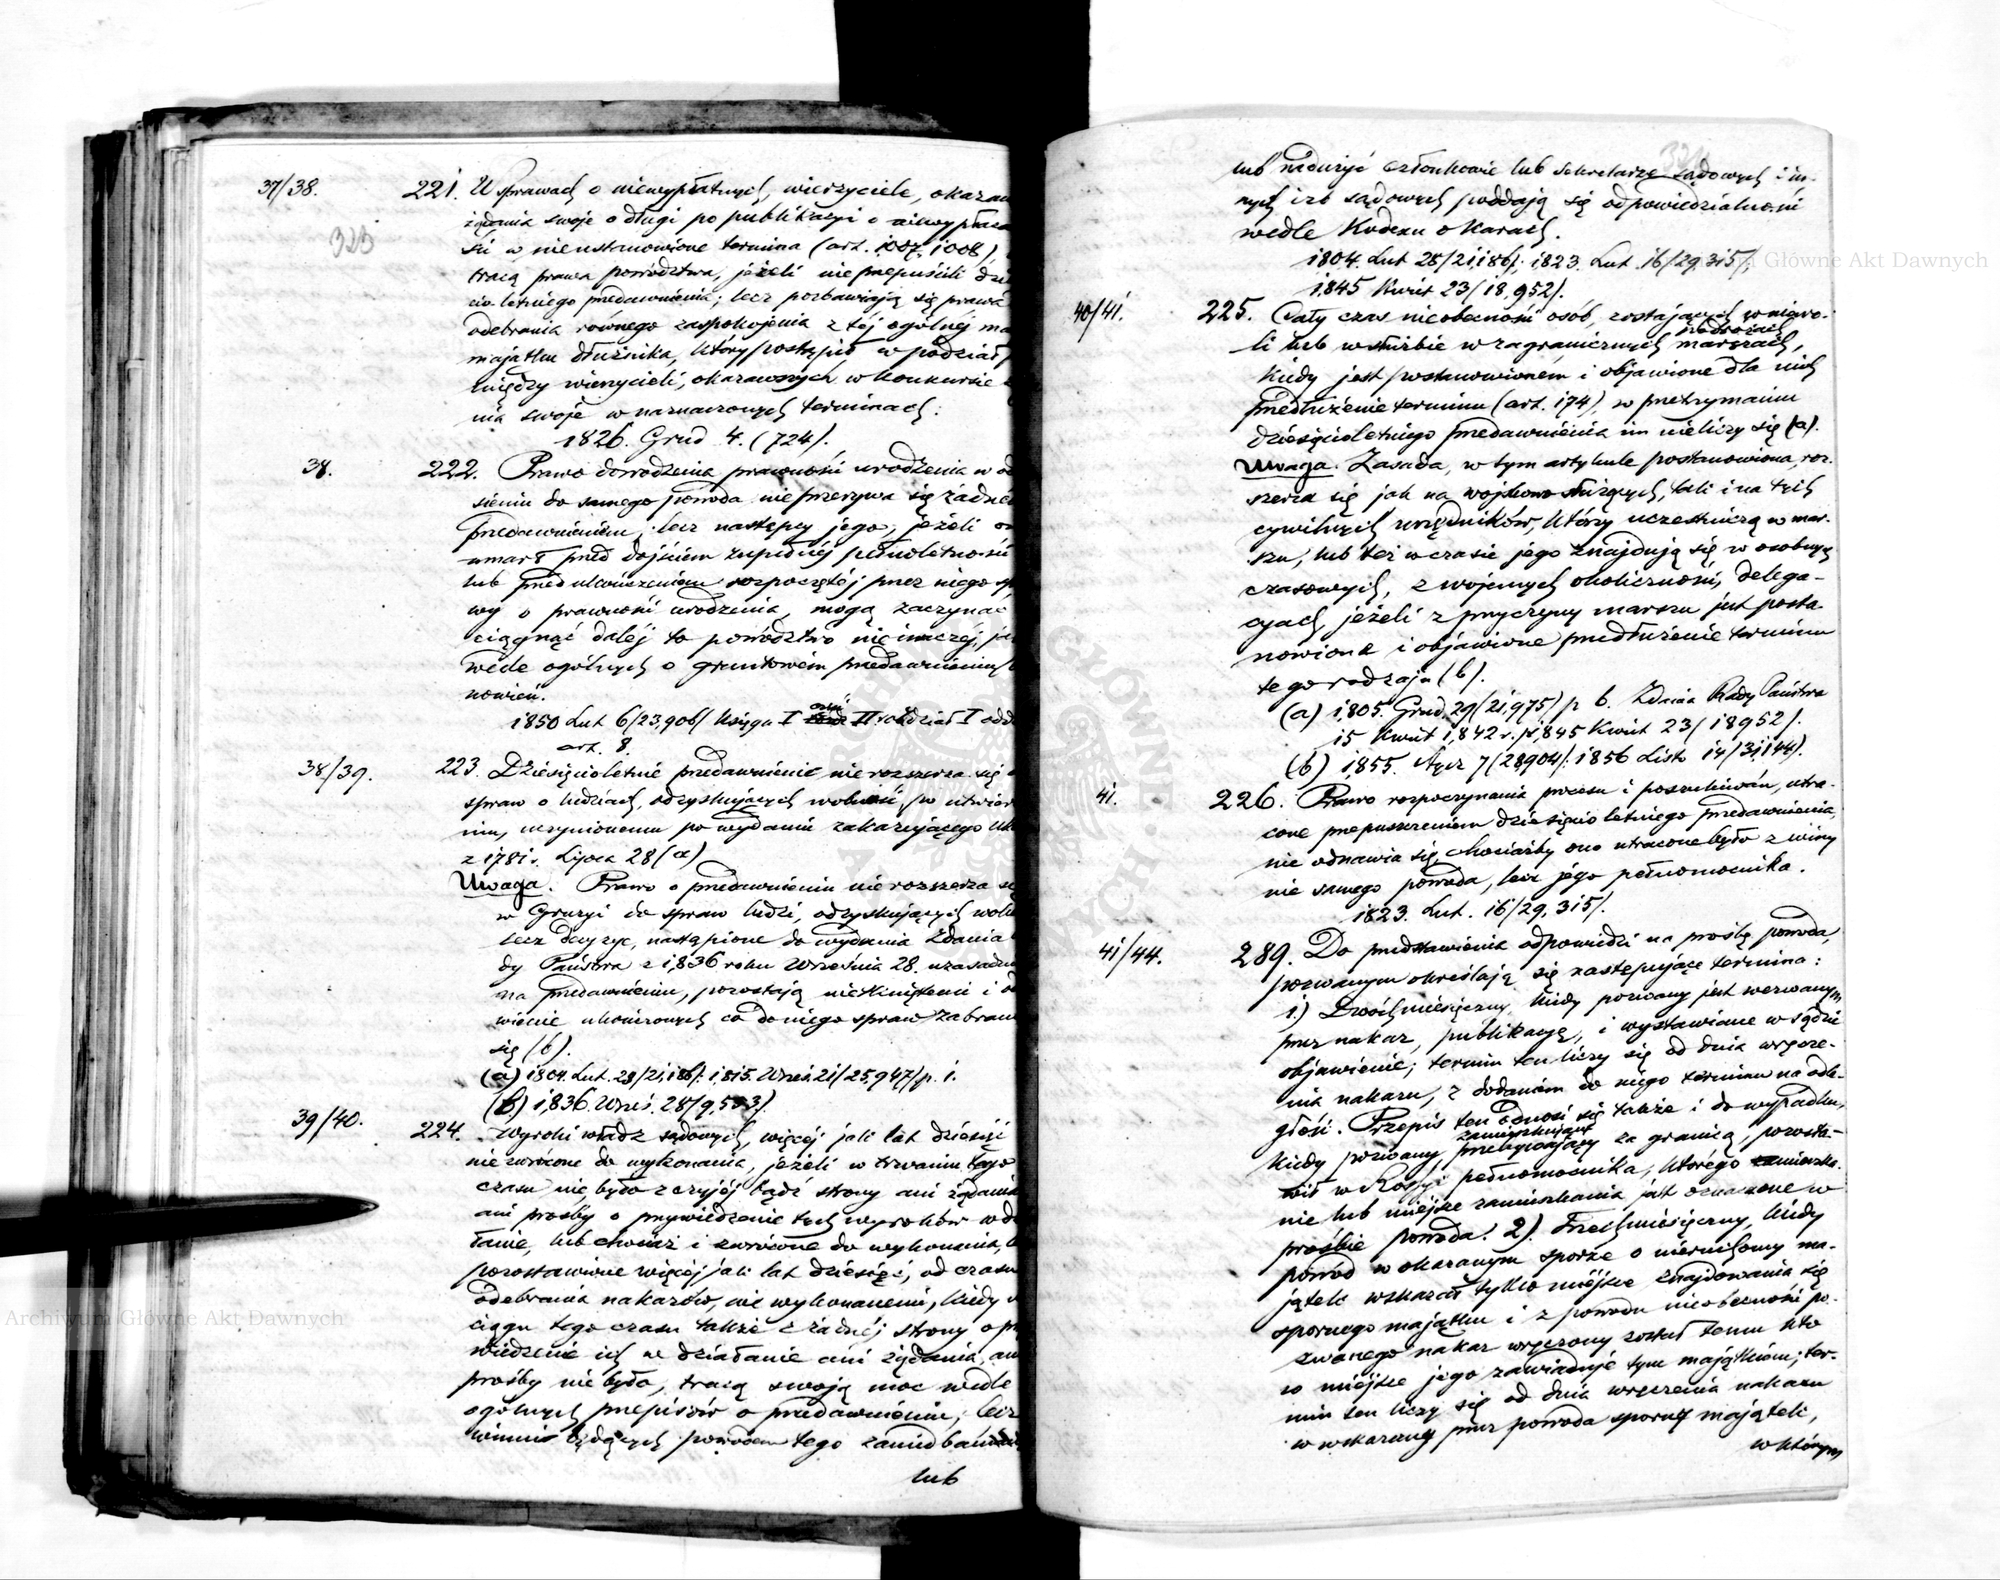 37/38.
323
221. W sprawach o niewypłatnych, wierzyciele, okazaw
żądania swoje o długi po publikacyi o niewypłatno
ści w nieustanowione termina (art. 1007, 1008),
tracą prawa powództwa, jeżeli nieprzepuścili dzie
cio letniego przedawnienia; lecz pozbawiają się prawa
odebrania równego zaspokojenia z téj ogólnéj ma
majątku dłużnika, który postąpił w podział p
między wierzycieli, okazawszych w konkursie
nia swoje w naznaczonych terminach.
1826. Grud. 4. (724).
38.
222. Prawo dowodzenia prawności urodzenia w od
sieniu do samego powoda nie przerywa się żadné
przedawnieniem; lecz następcy jego, jeżeli on
umarł przed dojściem zupełnéj pełnoletności
lub przed ukończeniem rozpoczętéj przez niego sp
wy o prawności urodzenia, mogą zaczynać
ciągnąć daléj to powództwo nie inaczéj, ja
wedle ogólnych o gruntowém przedawnieniu
nowień.
1850 Lut 6/23,906/ Księga I część II rozdział I odd
art. 8.
38/39.
223. Dziesięcioletnie przedawnienie nierozszerza się
spraw o ludziach, odzyskujących wolność, po utwier
niu, uczynionemu po wydaniu zakazującego Uk
z 1781 r. Lipca 28 (a)
Uwaga. Prawo o przedawnieniu nierozszerza się
w Gruzyi do spraw ludzi, odzyskujących woln
lecz decyzye, nastąpione do wydania Zdania
dy Państwa z 1836 roku Września 28. uzasadn
na przedawnieniu, pozostają nietkniętemi i od
wienie ukończonych co do niego spraw zabran
się (b).
(a) 1804. Lut. 28/21,186/; 1,815. Wrześ. 21/25,947/ p. 1.
(b) 1,836. Wrześ. 28/9,583).
39/40.
224. Wyroki władz sądowych, więcéj jak lat dziesięć
nie zwrócone do wykonania, jeżeli w trwaniu tego
czasu nie było z czyjéj bądź strony ani żądania
ani prośby o przywiedzenie tych wyroków w dz
łanie, lub chociaż i zwrócone do wykonania, l
pozostawione więcéj jak lat dziesięć, od czasu
odebrania nakazów, nie wykonanemi, kiedy
ciągu tego czasu także z żadnéj strony o pr
wiedzenie ich w działanie ani żądania, an
prośby nie było, tracą swoją moc wedle
ogólnych przepisów o przedawnieniu; lecz
winni będących powodem tego zaniedbania
lub
lub nadużyć członkowie lub sekretarze sądowych i in-
nych izb sądowych poddają się odpowiedzialności
wedle Kodexu o Karach.
1804. Lut 28/21,186/; 1823. Lut. 16/29,315/;
1,845 Kwiet 23/18,952/.
40/41.
225. Cały czas nieobecności osób, zostających w niewo-
podróżach
li lub w służbie w zagranicznych marszach,
kiedy jest postanowioném i objawione dla nich
przedłużenie terminu (art. 174), w przetrzymaniu
dziesięcioletniego przedawnienia im nieliczy się (a).
Uwaga. Zasada, w tym artykule postanowiona, roz-
szerza się jak na wojskowo służących, tak i na tych
cywilnych urzędników, którzy uczestniczą w mar-
szu, lub też w czasie jego znajdują się w osobnych
czasowych, z wojennych okoliczności, delega-
cyach, jeżeli z przyczyny marszu jest posta
nowione i objawione przedłużenie terminu
tego rodzaju (b).
(a) 1,805. Grud. 29/21,975/ p 6. Zdanie Rady Państwa
15 Kwiet 1,842 r. 1845 Kwiet 23/18952/.
(b) 1,855. 7/28904/; 1856 List 14/31,144).
41.
226. Prawo rozpoczynania procesu i poszukiwań, utra-
cone przepuszczeniem dziesięcio letniego przedawnienia,
nie odnawia się, chociażby ono utracone było z winy
nie samego powoda, lecz jego pełnomocnika.
1823. Lut. 16/29,315/.
41/44.
289. Do przedstawienia odpowiedzi na prośbę powoda,
pozwanym określają się następujące termina:
1.) Dwóchmiesięczny, kiedy pozwany jest wezwanym
przez nakaz, publikacyę, i wystawione w sądzie
objawienie; termin ten liczy się od dnia wręcze-
nia nakazu, z dodaniem do niego terminu na odle-
głość. Przepis ten odnosi się także i do wypadku,
zamieszkujący
kiedy pozwany przebywający za granicą, pozosta-
wił w Rossyi pełnomocnika, którego zamieszka-
nie lub miejsce zamieszkania jest oznaczone w
prośbie powoda. 2). Trzechmiesięczny, kiedy
powód w okazanym sporze o nieruchomy ma-
jątek wskazał tylko miéjsce znajdowania się
spornego majątku i z powodu nieobecności po-
zwanego nakaz wręczony został temu kto
w miejsce jego zawiaduje tym majątkiem; ter-
min ten liczy się od dnia wręczenia nakazu
w wskazany przez powoda sporny majątek,
w którym
Archiwum Główne Akt Dawnych